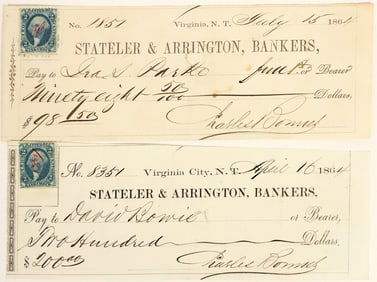 No. 1851 Virginia, N. T. July 15 1864
STATELER & ARRINGTON, BANKERS,
Pay to Ira S. Parke or Bearer
Ninety eight 50/100 Dollars,
$98 50 Charles Bonner
No. 8351 Virginia City, N. T. April 16 1864
STATELER & ARRINGTON, BANKERS,
Pay to David Bowie or Bearer,
Two Hundred Dollars,
$200.00 Charles Bonner